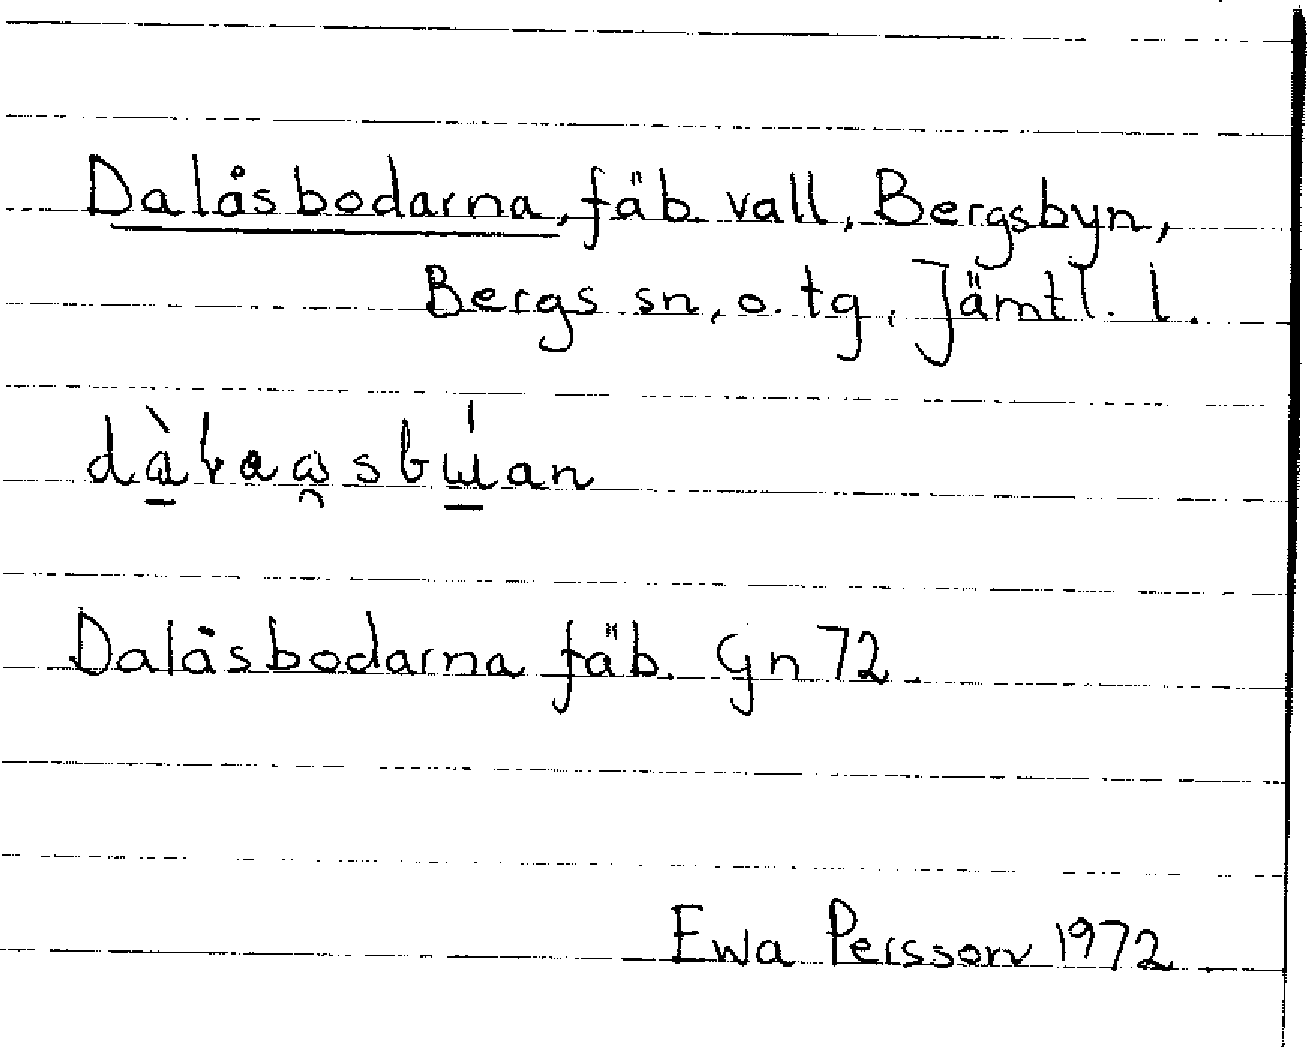 Dalåsbodarna, fäb. vall, Bergsbyn,
Bergs sn, o. tg, Jämtl. l.
Dalåsbodarna fäb. Gn 72.
Ewa Persson 1972